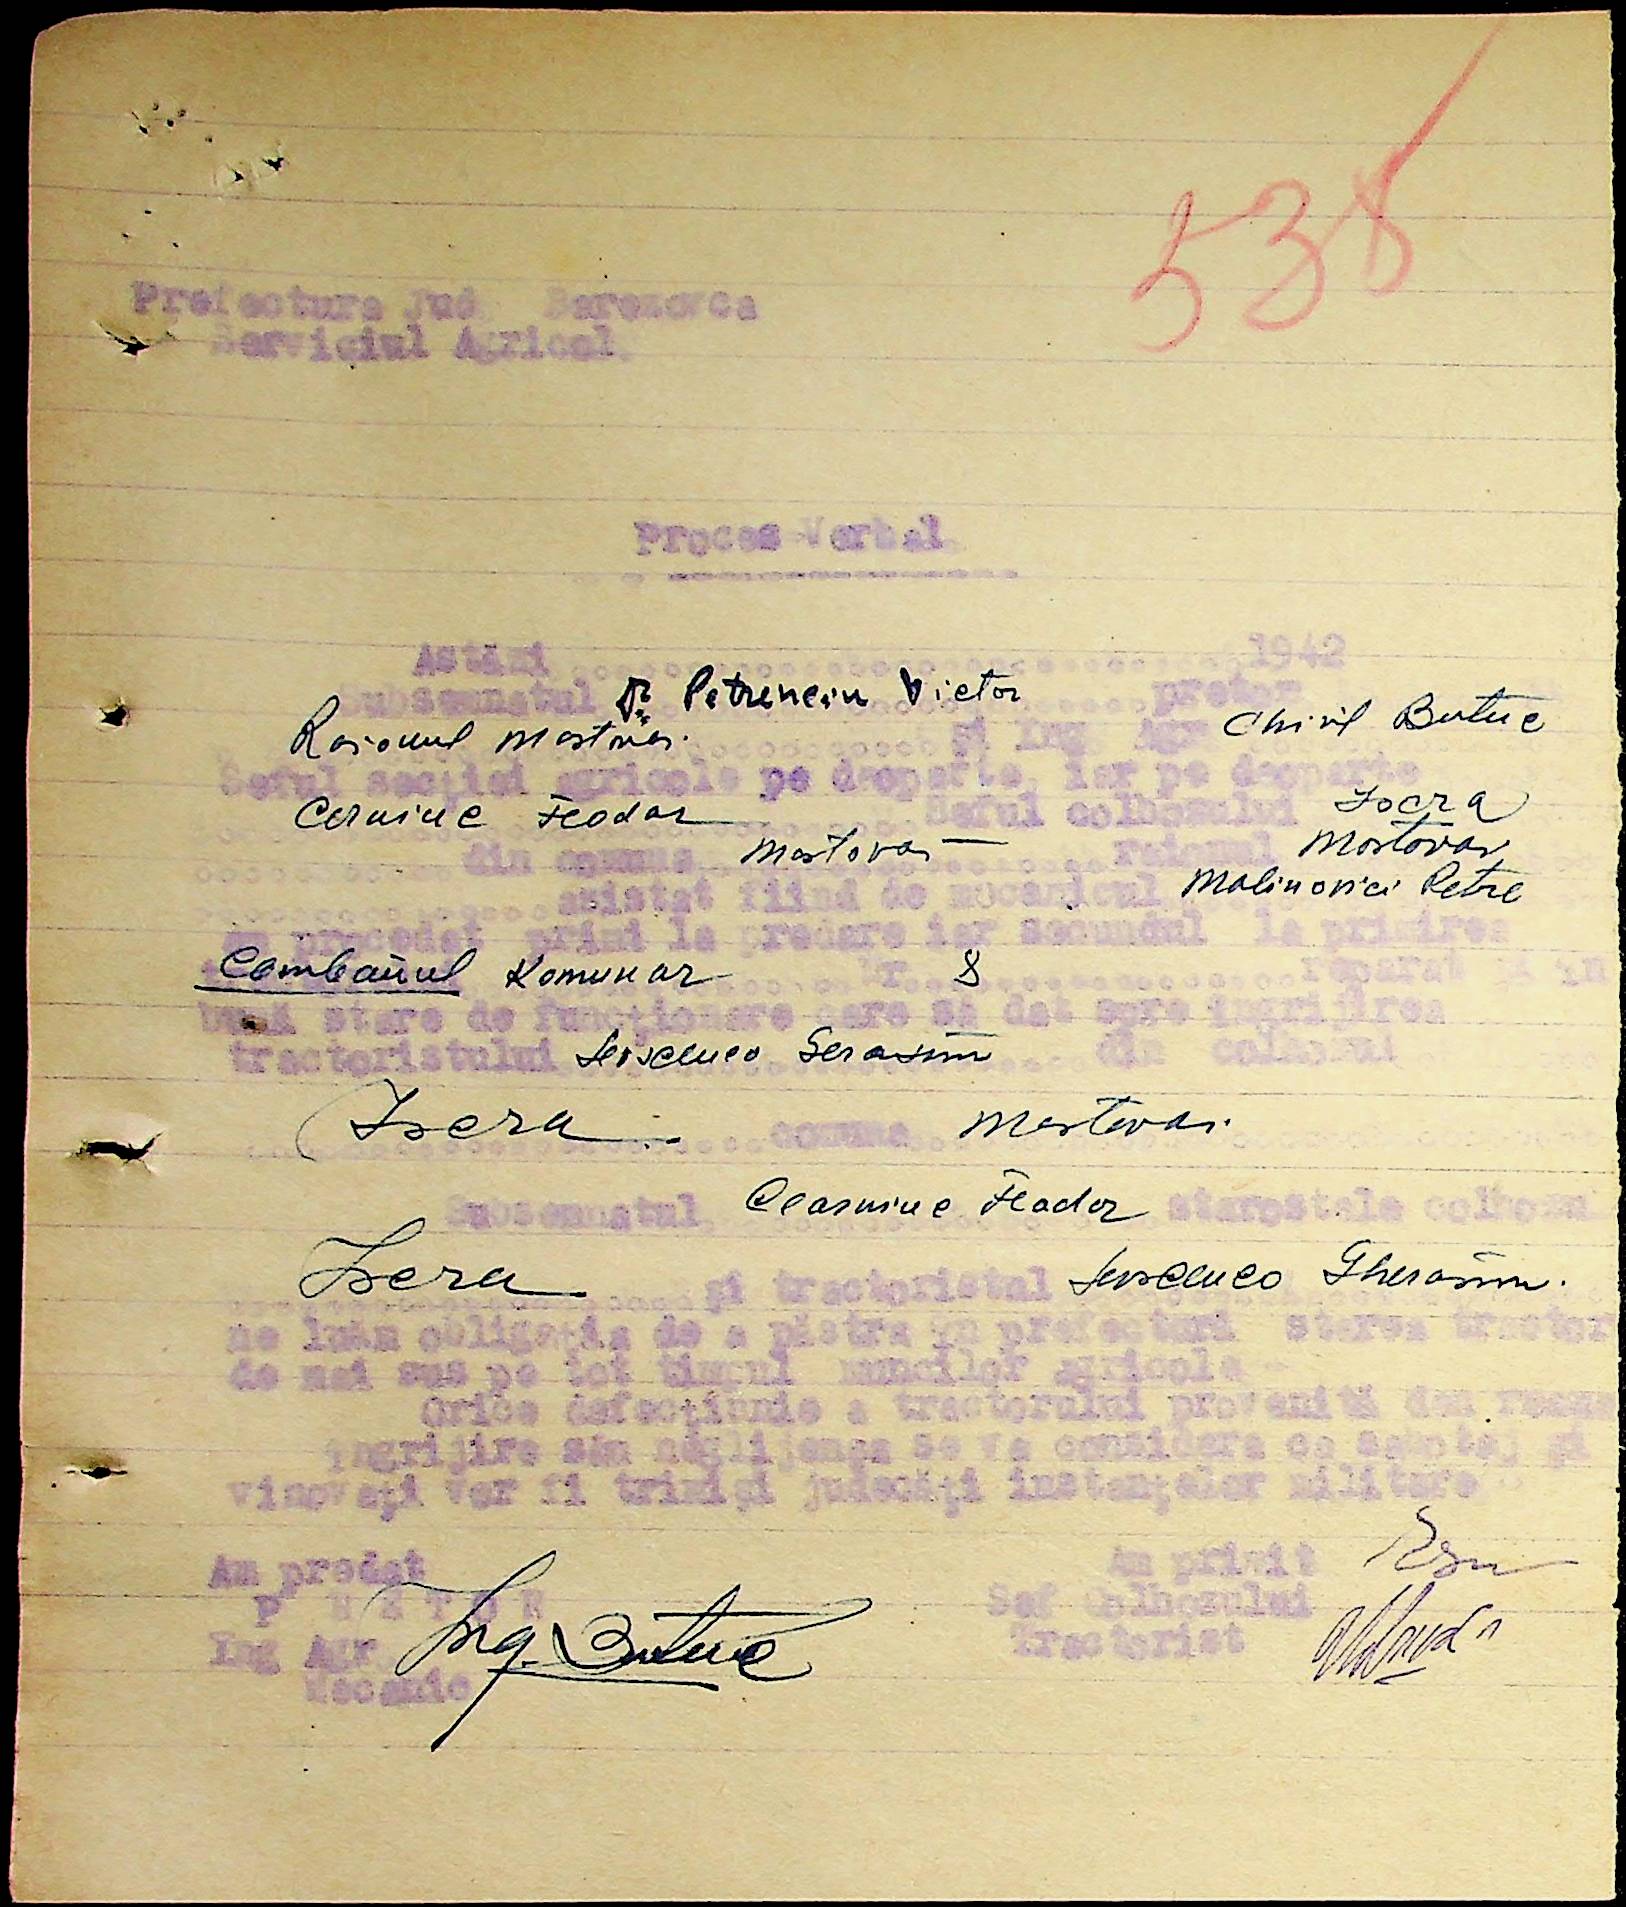 538
Prefectura Jud. Berezovca
Serviciul Agricol.
Proces-Verbal
Astăzi ........................ 1942
Subsemnatul Dr. Petrenciu Victor pretor
Raionul Mostovoi. și Ing. Agr. Chiril Butuc
Seful secției agricole pe deoparte, iar pe deoparte
Cerniuc Feodor Seful colhozului Iscra
din comuna Mostovoi raionul Mostovoi
asistat fiind de mecanicul Malinovici Petre
am procedat primi la predare iar secundul la primirea
Combainul Komunar Nr. 8 reparat și în
bună stare de funcționare care să dat spre îngrijirea
tractoristului Sevscenco Gerasim din colhozul
Iscra comuna Mostovoi.
Subsemnatul Cearniuc Feodor starostele colhozu
Iscra și tractoristul Sevscenco Gherasim.
ne luăm obligația de a păstra în prefectură starea tractor
de mai sus pe tot timpul muncilor agricole
Orice defecțiunie a tractorului provenită den reaua
îngrijire sau neglijența se va considera ca sabotaj și
vinovați vor fi trimiși judecăți instanțelor militare
Am predat Am primit
P R E T O R Sef Colhozului
Ing Agr Ing. Butuc Tractorist
Mecanic